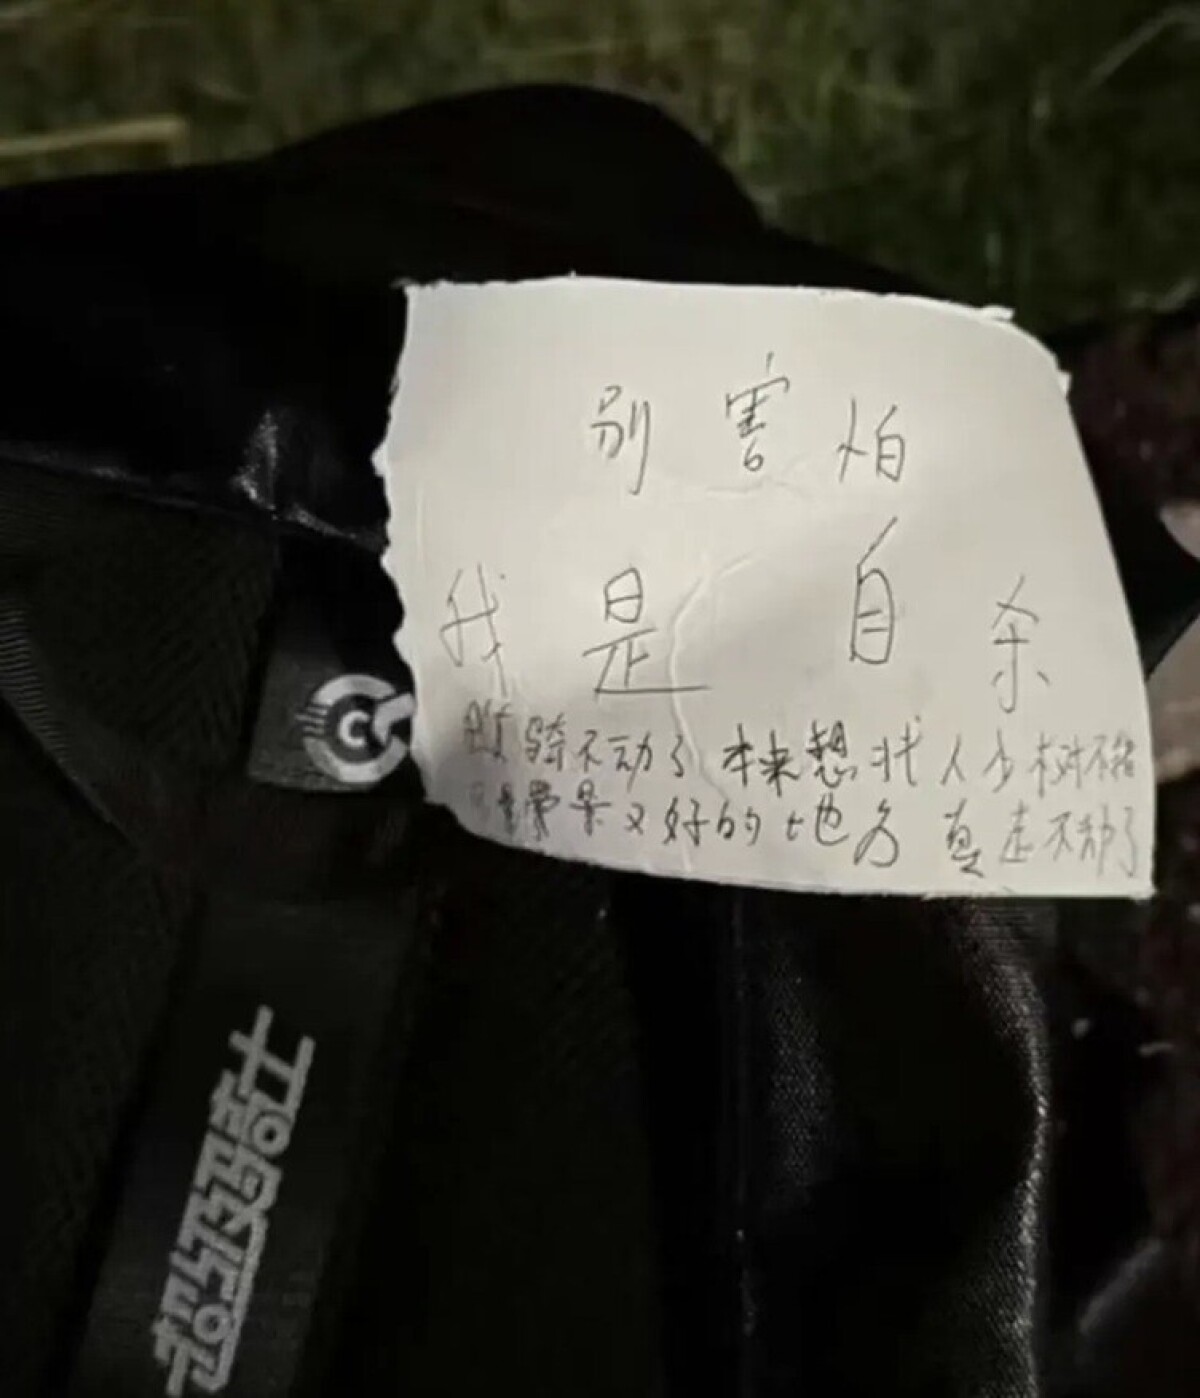 别害怕
我是 自杀
骑不动了 本来想找人少树不错
景又好的地方 真走不动了
C
想骑士